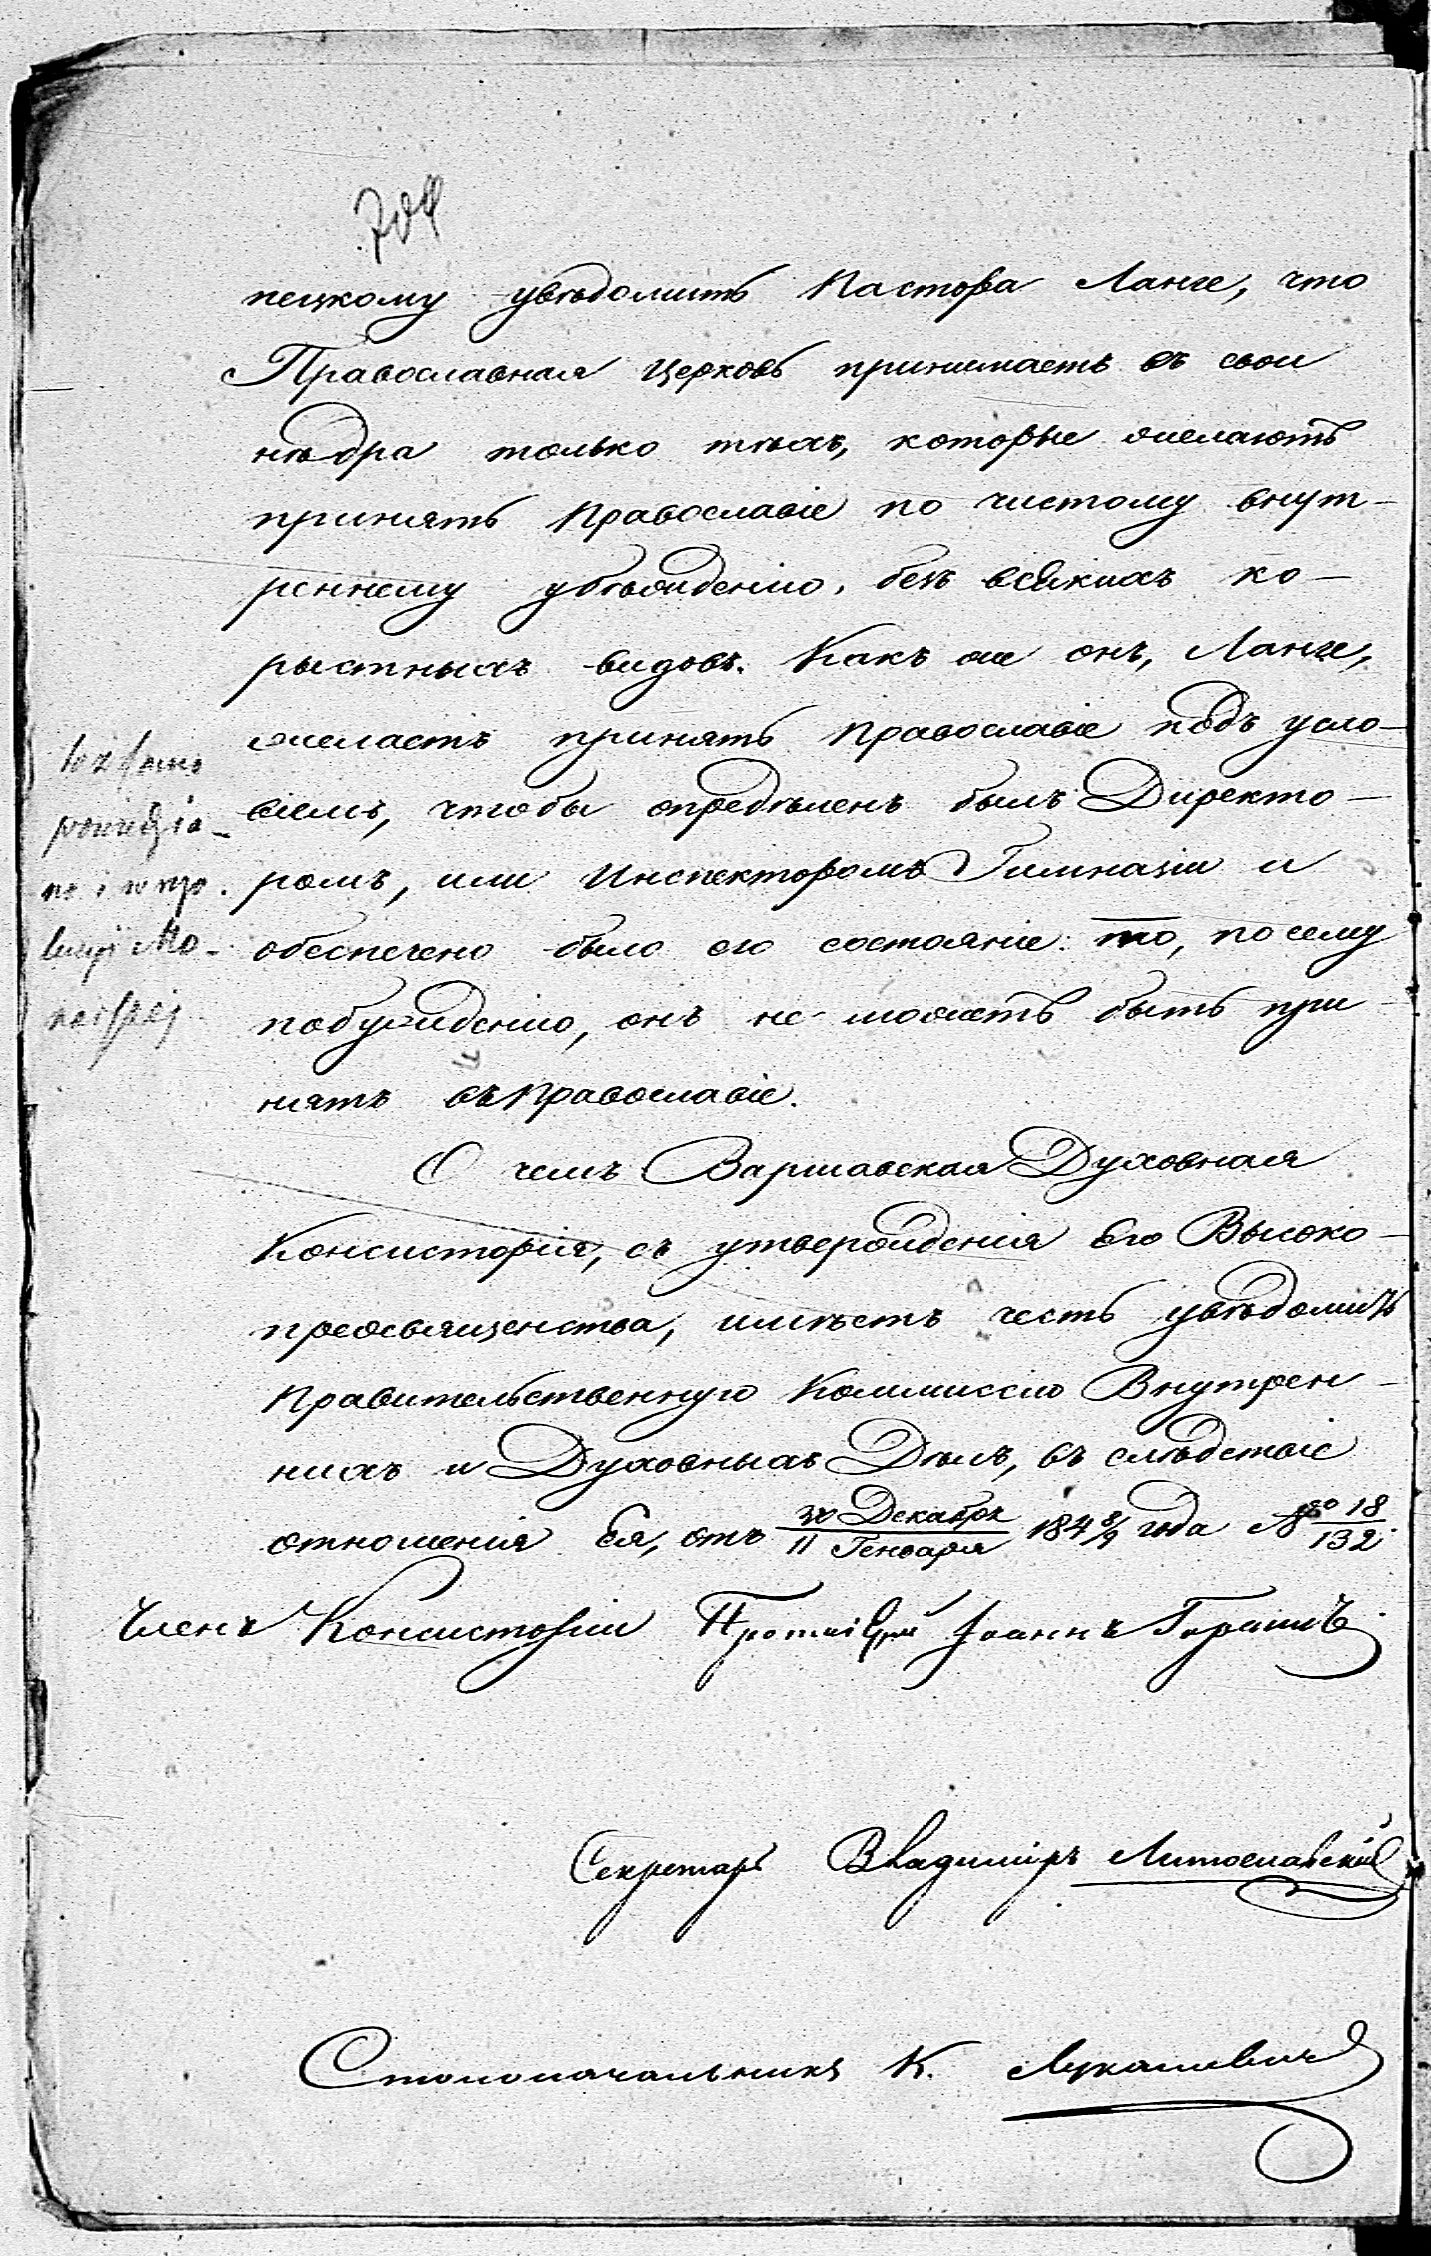 пецкому увѣдомить Пастора Ланге, что
Православная Церковь принимаетъ въ свои
нѣдра только тѣхъ, которые желаютъ
принять Православіе по чистому внут-
реннему убѣжденію, безъ всякихъ ко-
рыстныхъ видовъ. Какъ же онъ, Ланге,
желаетъ принять Православіе подъ усло-
віемъ, чтобы опредѣленъ былъ Директо-
ромъ, или Инспекторомъ Гимназіи и
обеспечено было его состояніе: то, по сему
побужденію, онъ не можетъ быть при-
нятъ въ Православіе.
О чемъ Варшавская Духовная
Консисторія, съ утвержденія Его Высоко-
преосвященства, имѣетъ честь увѣдомить
Правительственную Коммиссію Внутрен-
нихъ и Духовныхъ Дѣлъ, въ слѣдствіе
отношенія Ея, отъ 30 Декабря / 11 Генваря 184 8/9 года № 18/132.
Членъ Консисторіи Протоіерей Іоаннъ
Секретарь Владиміръ Литославскій
Столоначальникъ К. Лукашевичъ